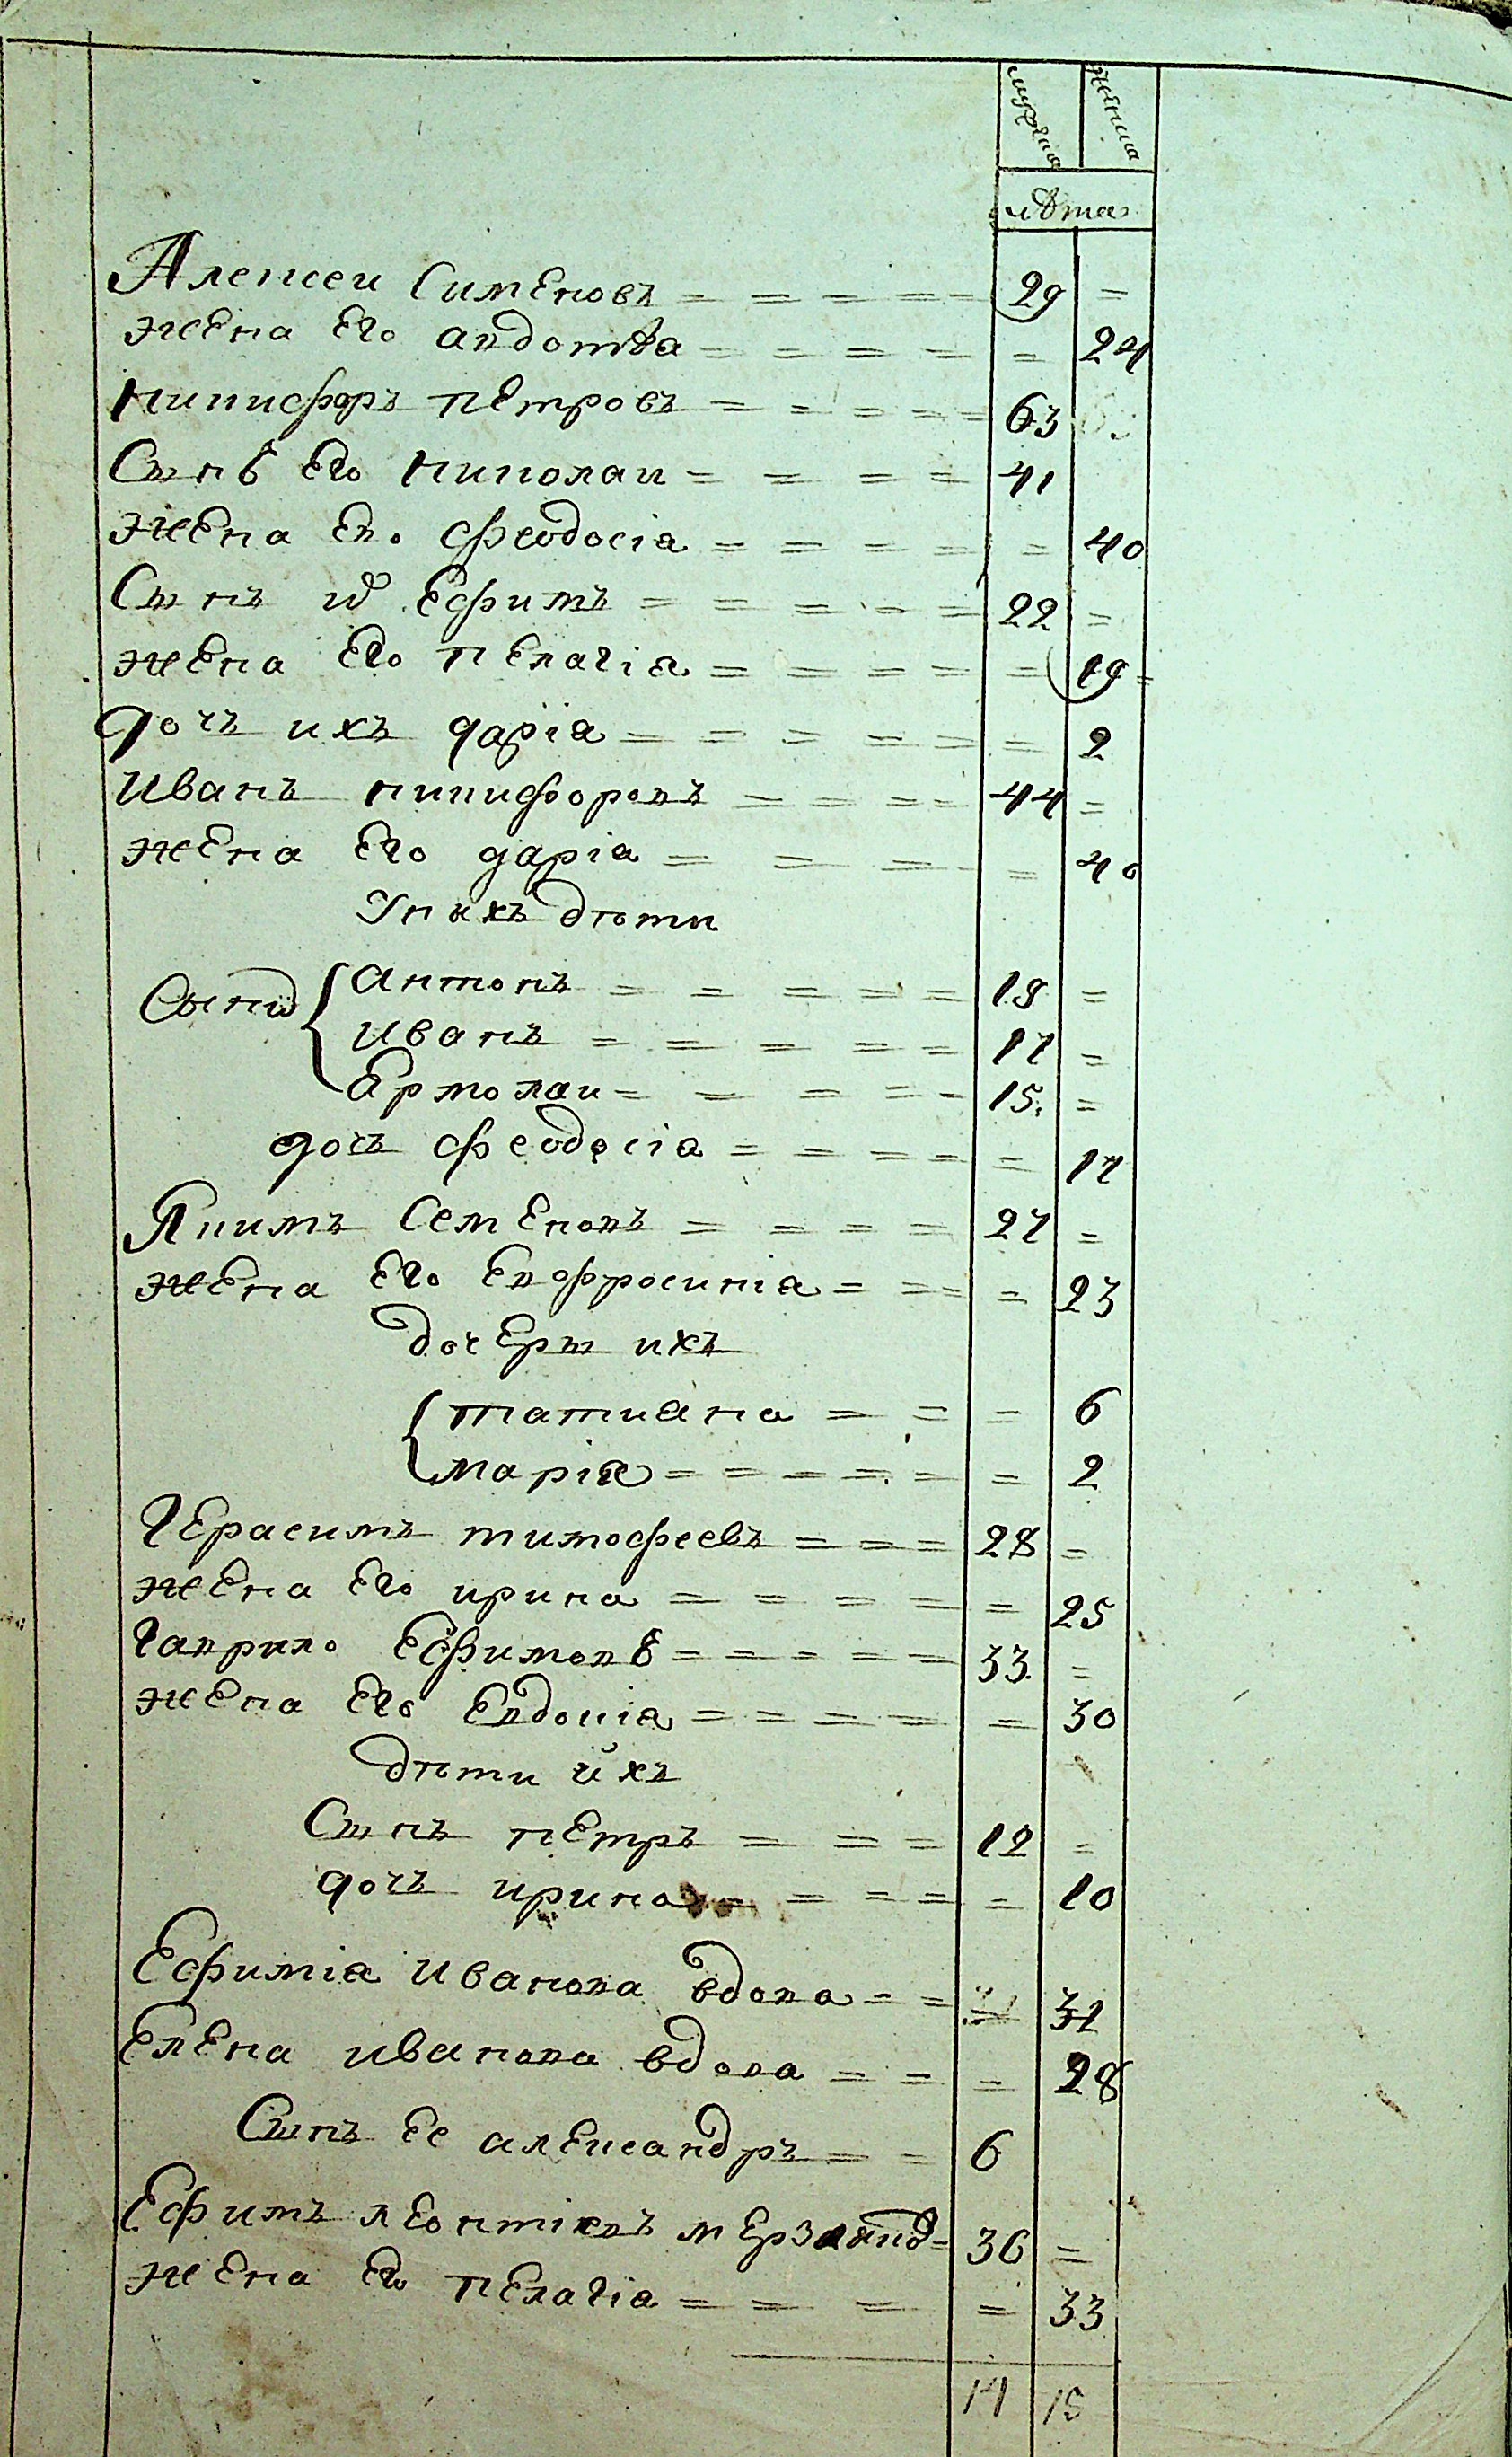 мужска женска
лѣта
Алексеи Сименовъ = = = = = 29 =
жена его авдотѣа = = = = = 24
никифоръ петровъ = = = = = 63
Сынъ его николаи = = = = 41
жена его феодосіа = = = = = 40
Сынъ Ефимъ = = = = = 22 =
жена его пелагіа = = = = = 19 =
дочь ихъ даріа = = = = = = 2
Иванъ никифоровъ = = = = 44 =
жена его даріа = = = = 40
У никъ дѣти
Сыны { антонъ = = = = = 19 =
иванъ = = = = = 17 =
Ермолаи = = = = = 15. =
дочь феодосіа = = = = = 17
Якимъ Семеновъ = = = = 27 =
жена его Евфросиніа = = = = 23
дочеры ихъ
{ татиана = = = 6
маріа = = = = = = 2
Герасимъ тимофеевъ = = = 28 =
жена его ирина = = = = = = 25
Гаврило Ефимовъ = = = = = 33. =
жена его Евдокіа = = = = = = 30
дѣти ихъ
Сынъ петръ = = = 12 =
дочь ирина = = = = = 10
Ефиміа Иванова вдова = = = 31
Елена иванова вдова = = = 28
Сынъ ее александръ = = 6
Ефимъ леонтіевъ = 36 =
жена его пелагіа = = = = 33
14 15